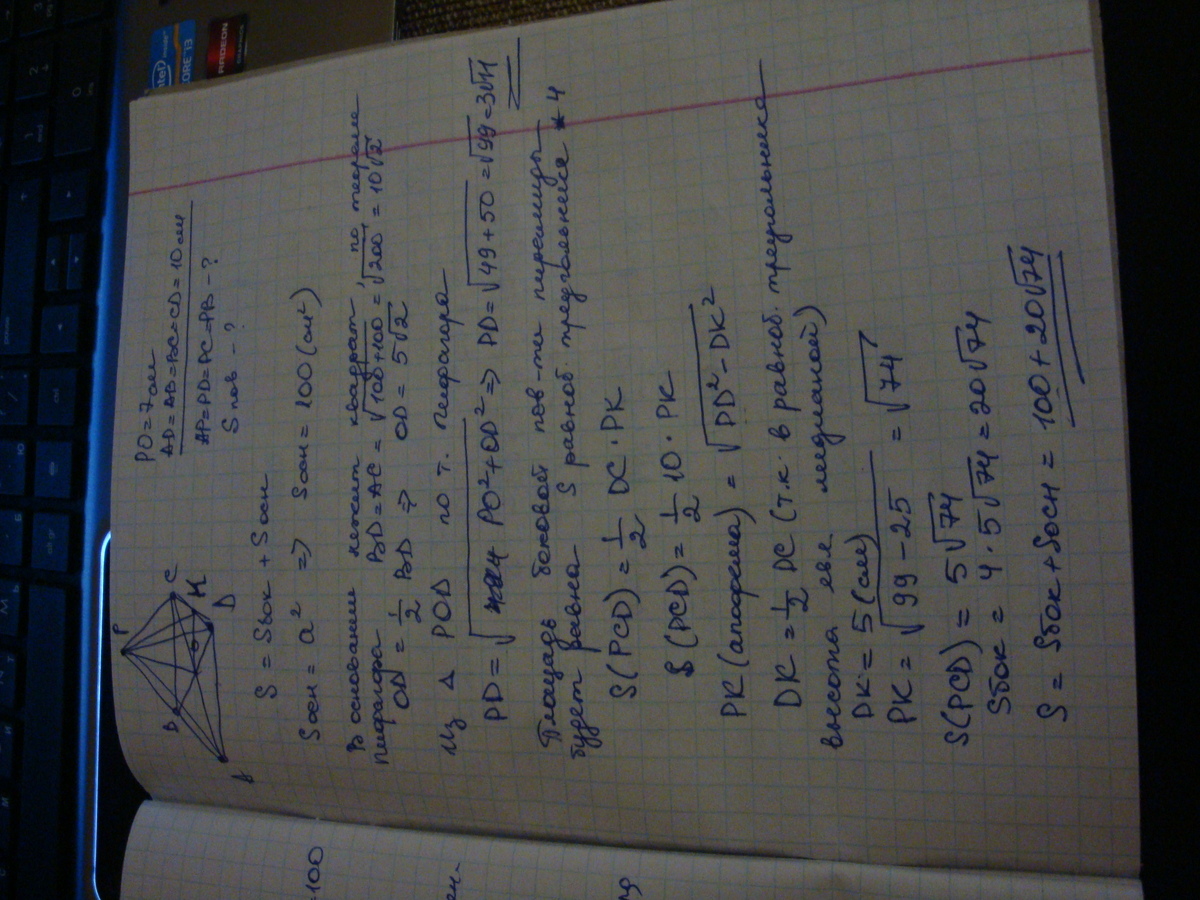 PO = 7 см
AD = AB = BC = CD = 10 см
AP = PD = PC = PB - ?
S пов - ?
P
B
C
K
O
D
A
S = Sбок + Sосн
Sосн = a² => Sосн = 100 (см²)
В основании лежит квадрат, по теореме
Пифагора BD = AC = √100+100 = √200 = 10√2
OD = 1/2 BD => OD = 5√2
Из Δ POD по т. Пифагора
PD = √PO² + OD² => PD = √49+50 = √99 = 3√11
Площадь боковой пов-ти пирамиды
будет равна S равноб. треугольника * 4
S(PCD) = 1/2 DC · PK
S(PCD) = 1/2 10 · PK
PK (апофема) = √PD² - DK²
DK = 1/2 DC (т.к. в равноб. треугольнике
высота явл медианой)
DK = 5 (см)
PK = √99 - 25 = √74
S(PCD) = 5√74
Sбок = 4 · 5√74 = 20√74
S = Sбок + Sосн = 100 + 20√74
=100
intel
CORE i3
RADEON